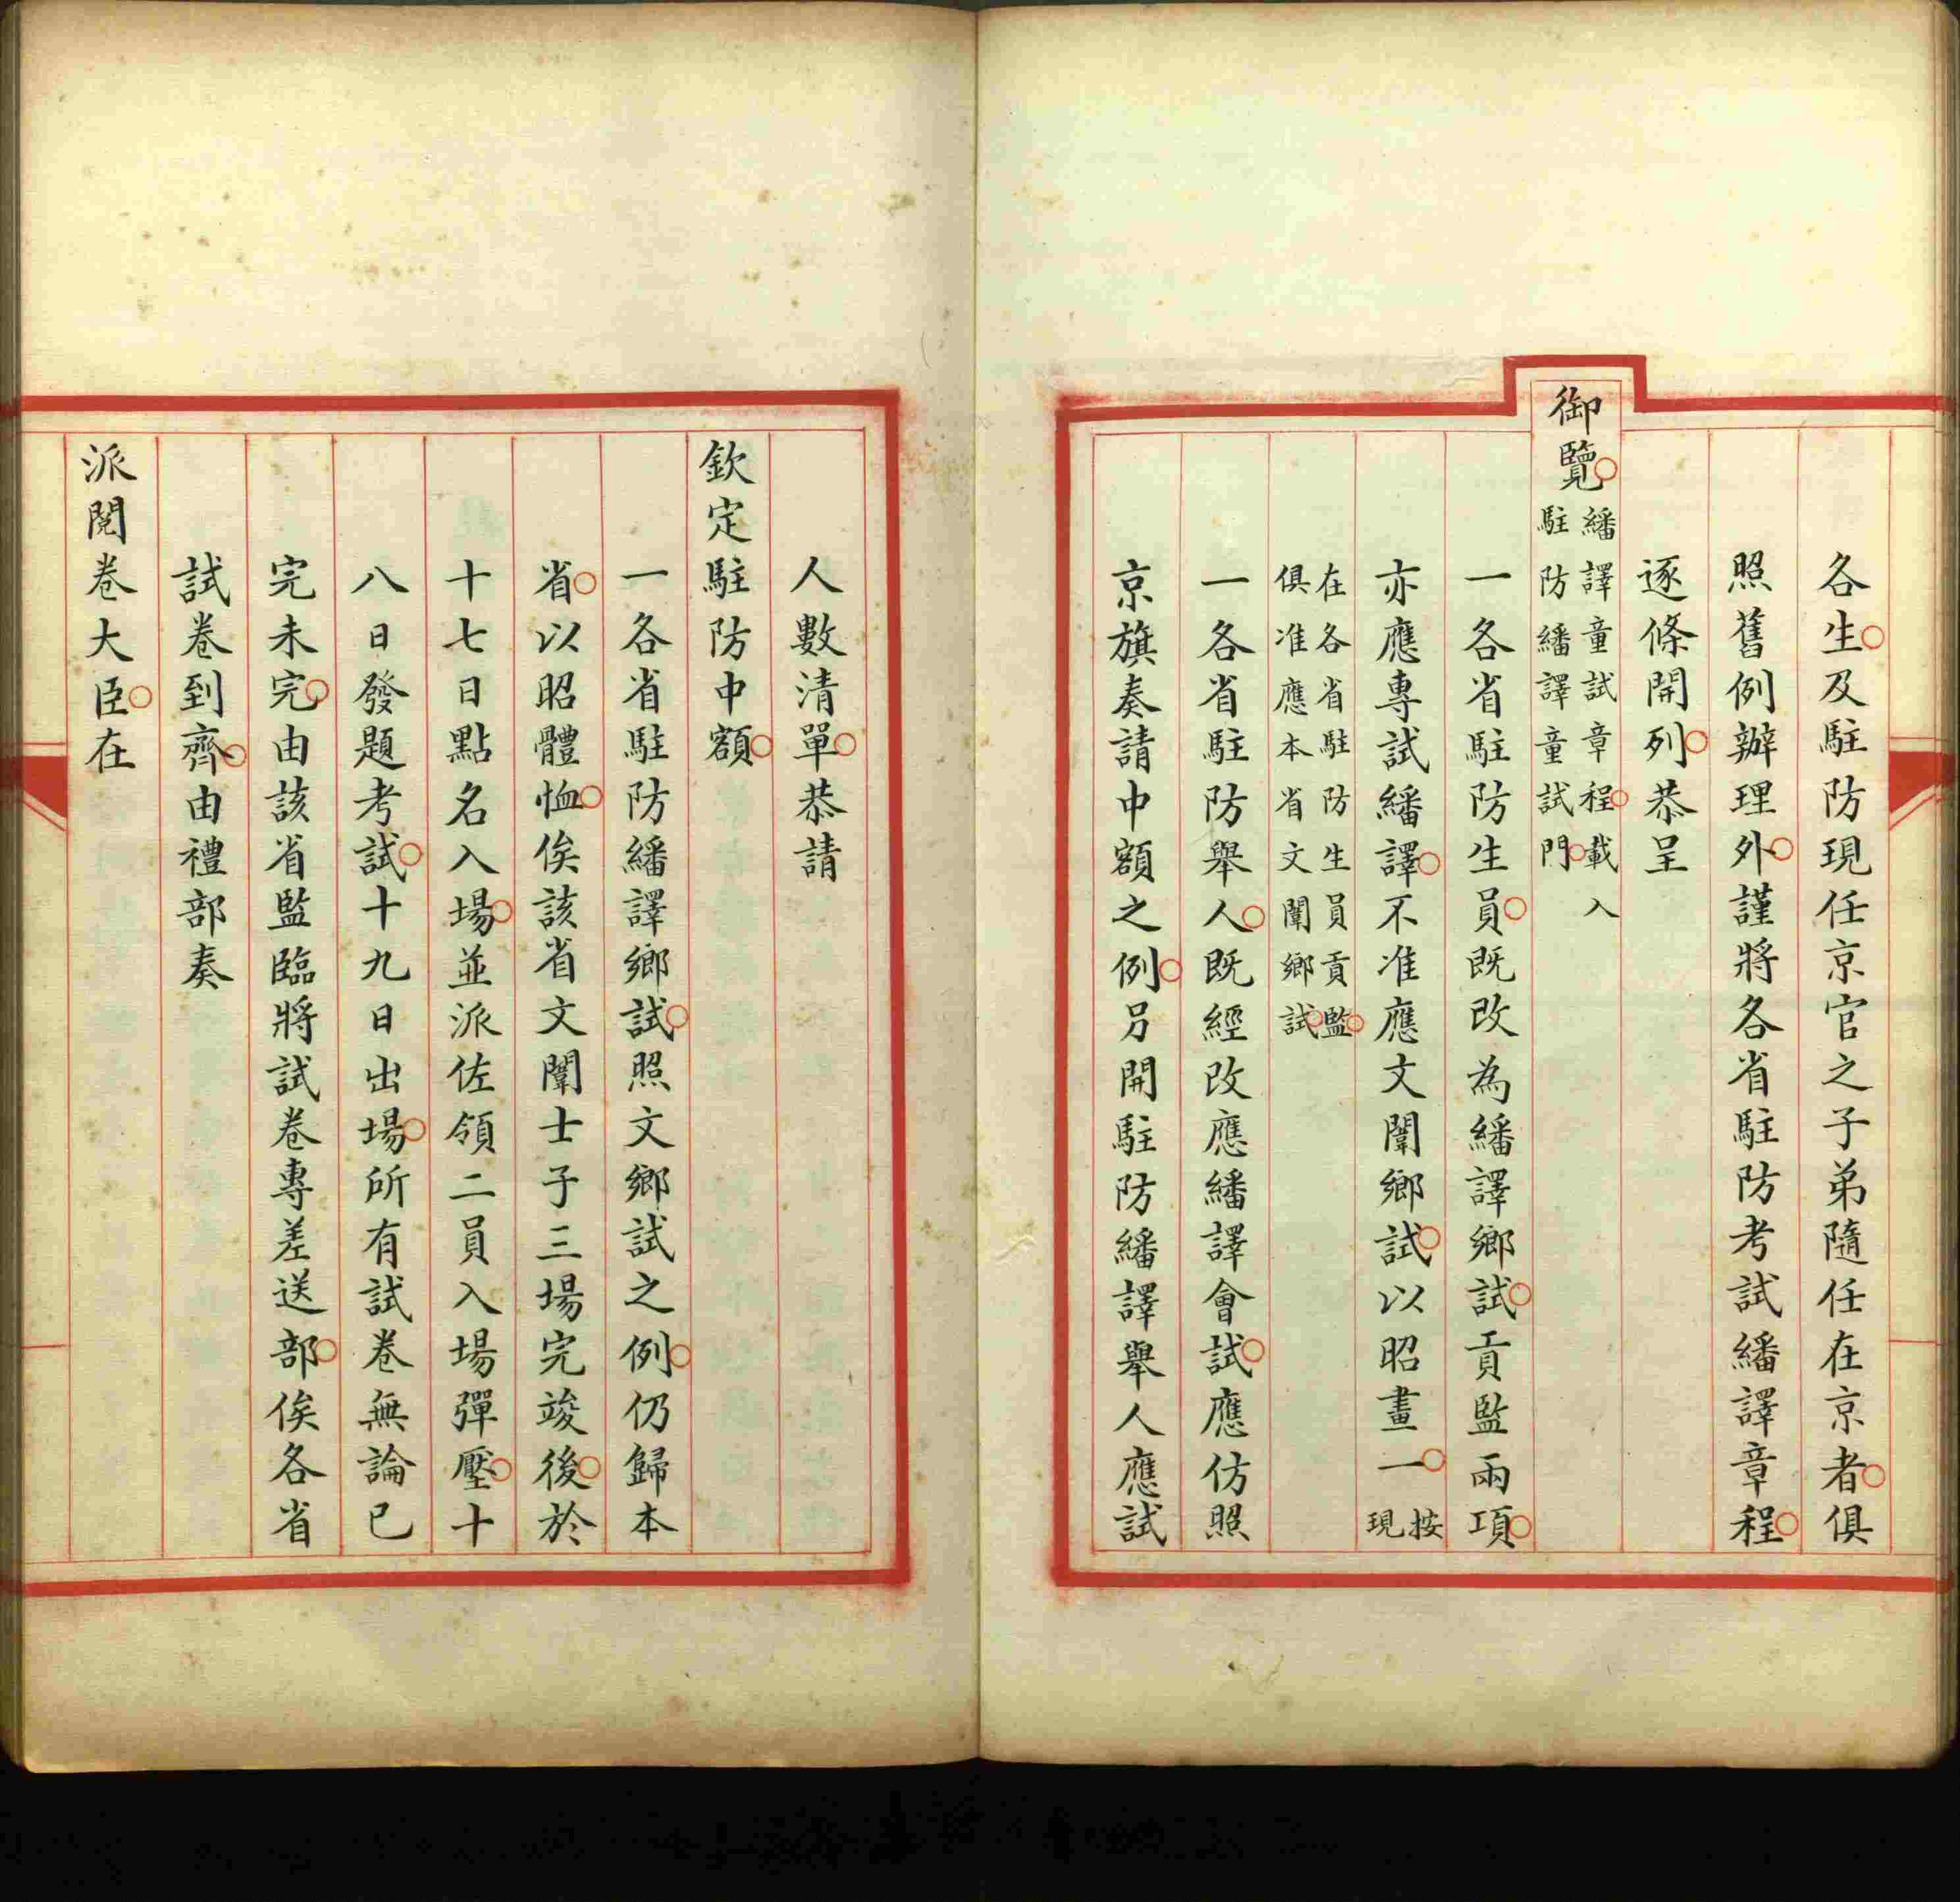 各生及駐防現任京官之子弟隨任在京者俱
照舊例辦理外謹將各省駐防考試繙譯章程
逐條開列恭呈
御覽繙譯童試章程載入
駐防繙譯童試門
一各省駐防生員既改為繙譯鄉試貢監兩項
亦應專試繙譯不准應文闈鄉試以昭畫一按
現
在各省駐防生員貢監
俱准應本省文闈鄉試
一各省駐防舉人既經改應繙譯會試應仿照
京旗奏請中額之例另開駐防繙譯舉人應試
人數清單恭請
欽定駐防中額
一各省駐防繙譯鄉試照文鄉試之例仍歸本
省以昭體恤俟該省文闈士子三場完竣後於
十七日點名入場並派佐領二員入場彈壓十
八日發題考試十九日出場所有試卷無論已
完未完由該省監臨將試卷專差送部俟各省
試卷到齊由禮部奏
派閱卷大臣在